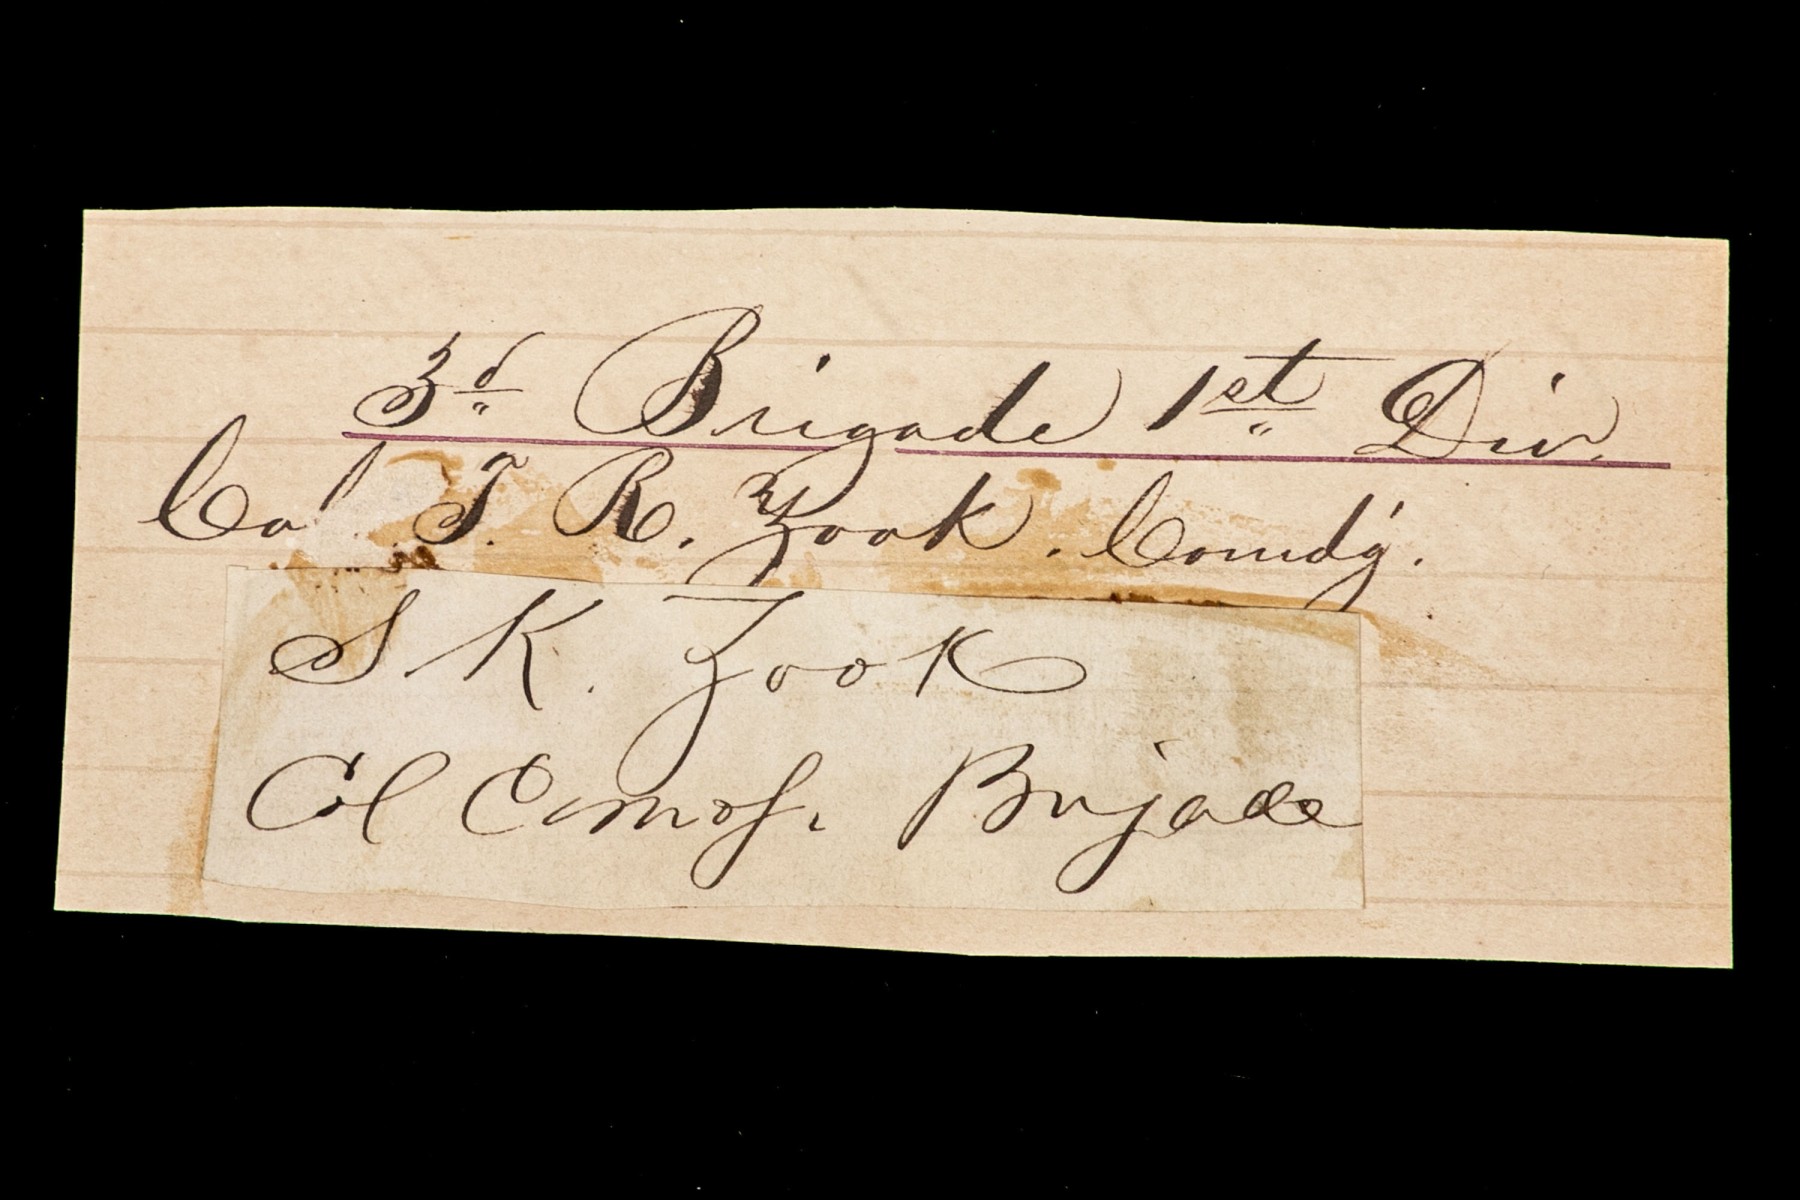 3d Brigade 1st Div.
Col. T. R. Zook. Comdg.
S. K. Zook
Col Comdg. Brigade